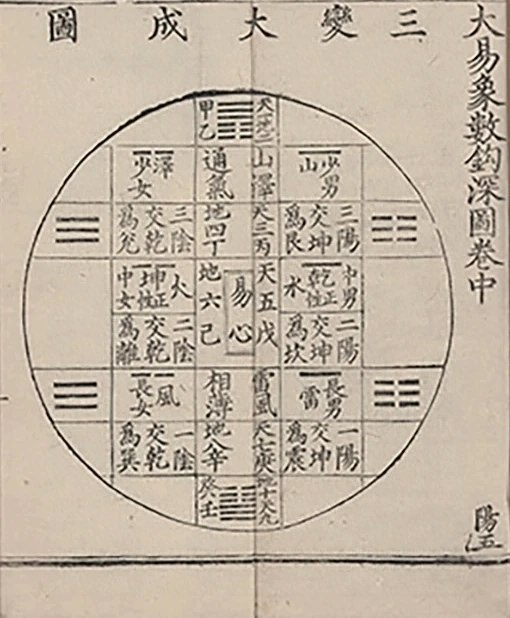 大易象數鈎深圖卷中
三變大成圖
少男
山
三陽
交坤
為艮
中男
乾正性
水
二陽
交坤
為坎
長男
雷
一陽
交坤
為震
天一地二
甲乙
山澤
通氣
天三丙
地四丁
天五戊
易心
地六己
雷風
相薄
天七庚
地八辛
地十天九
癸壬
澤
少女
三陰
交乾
為兌
火
坤正性
中女
二陰
交乾
為離
風
長女
一陰
交乾
為巽
陽五